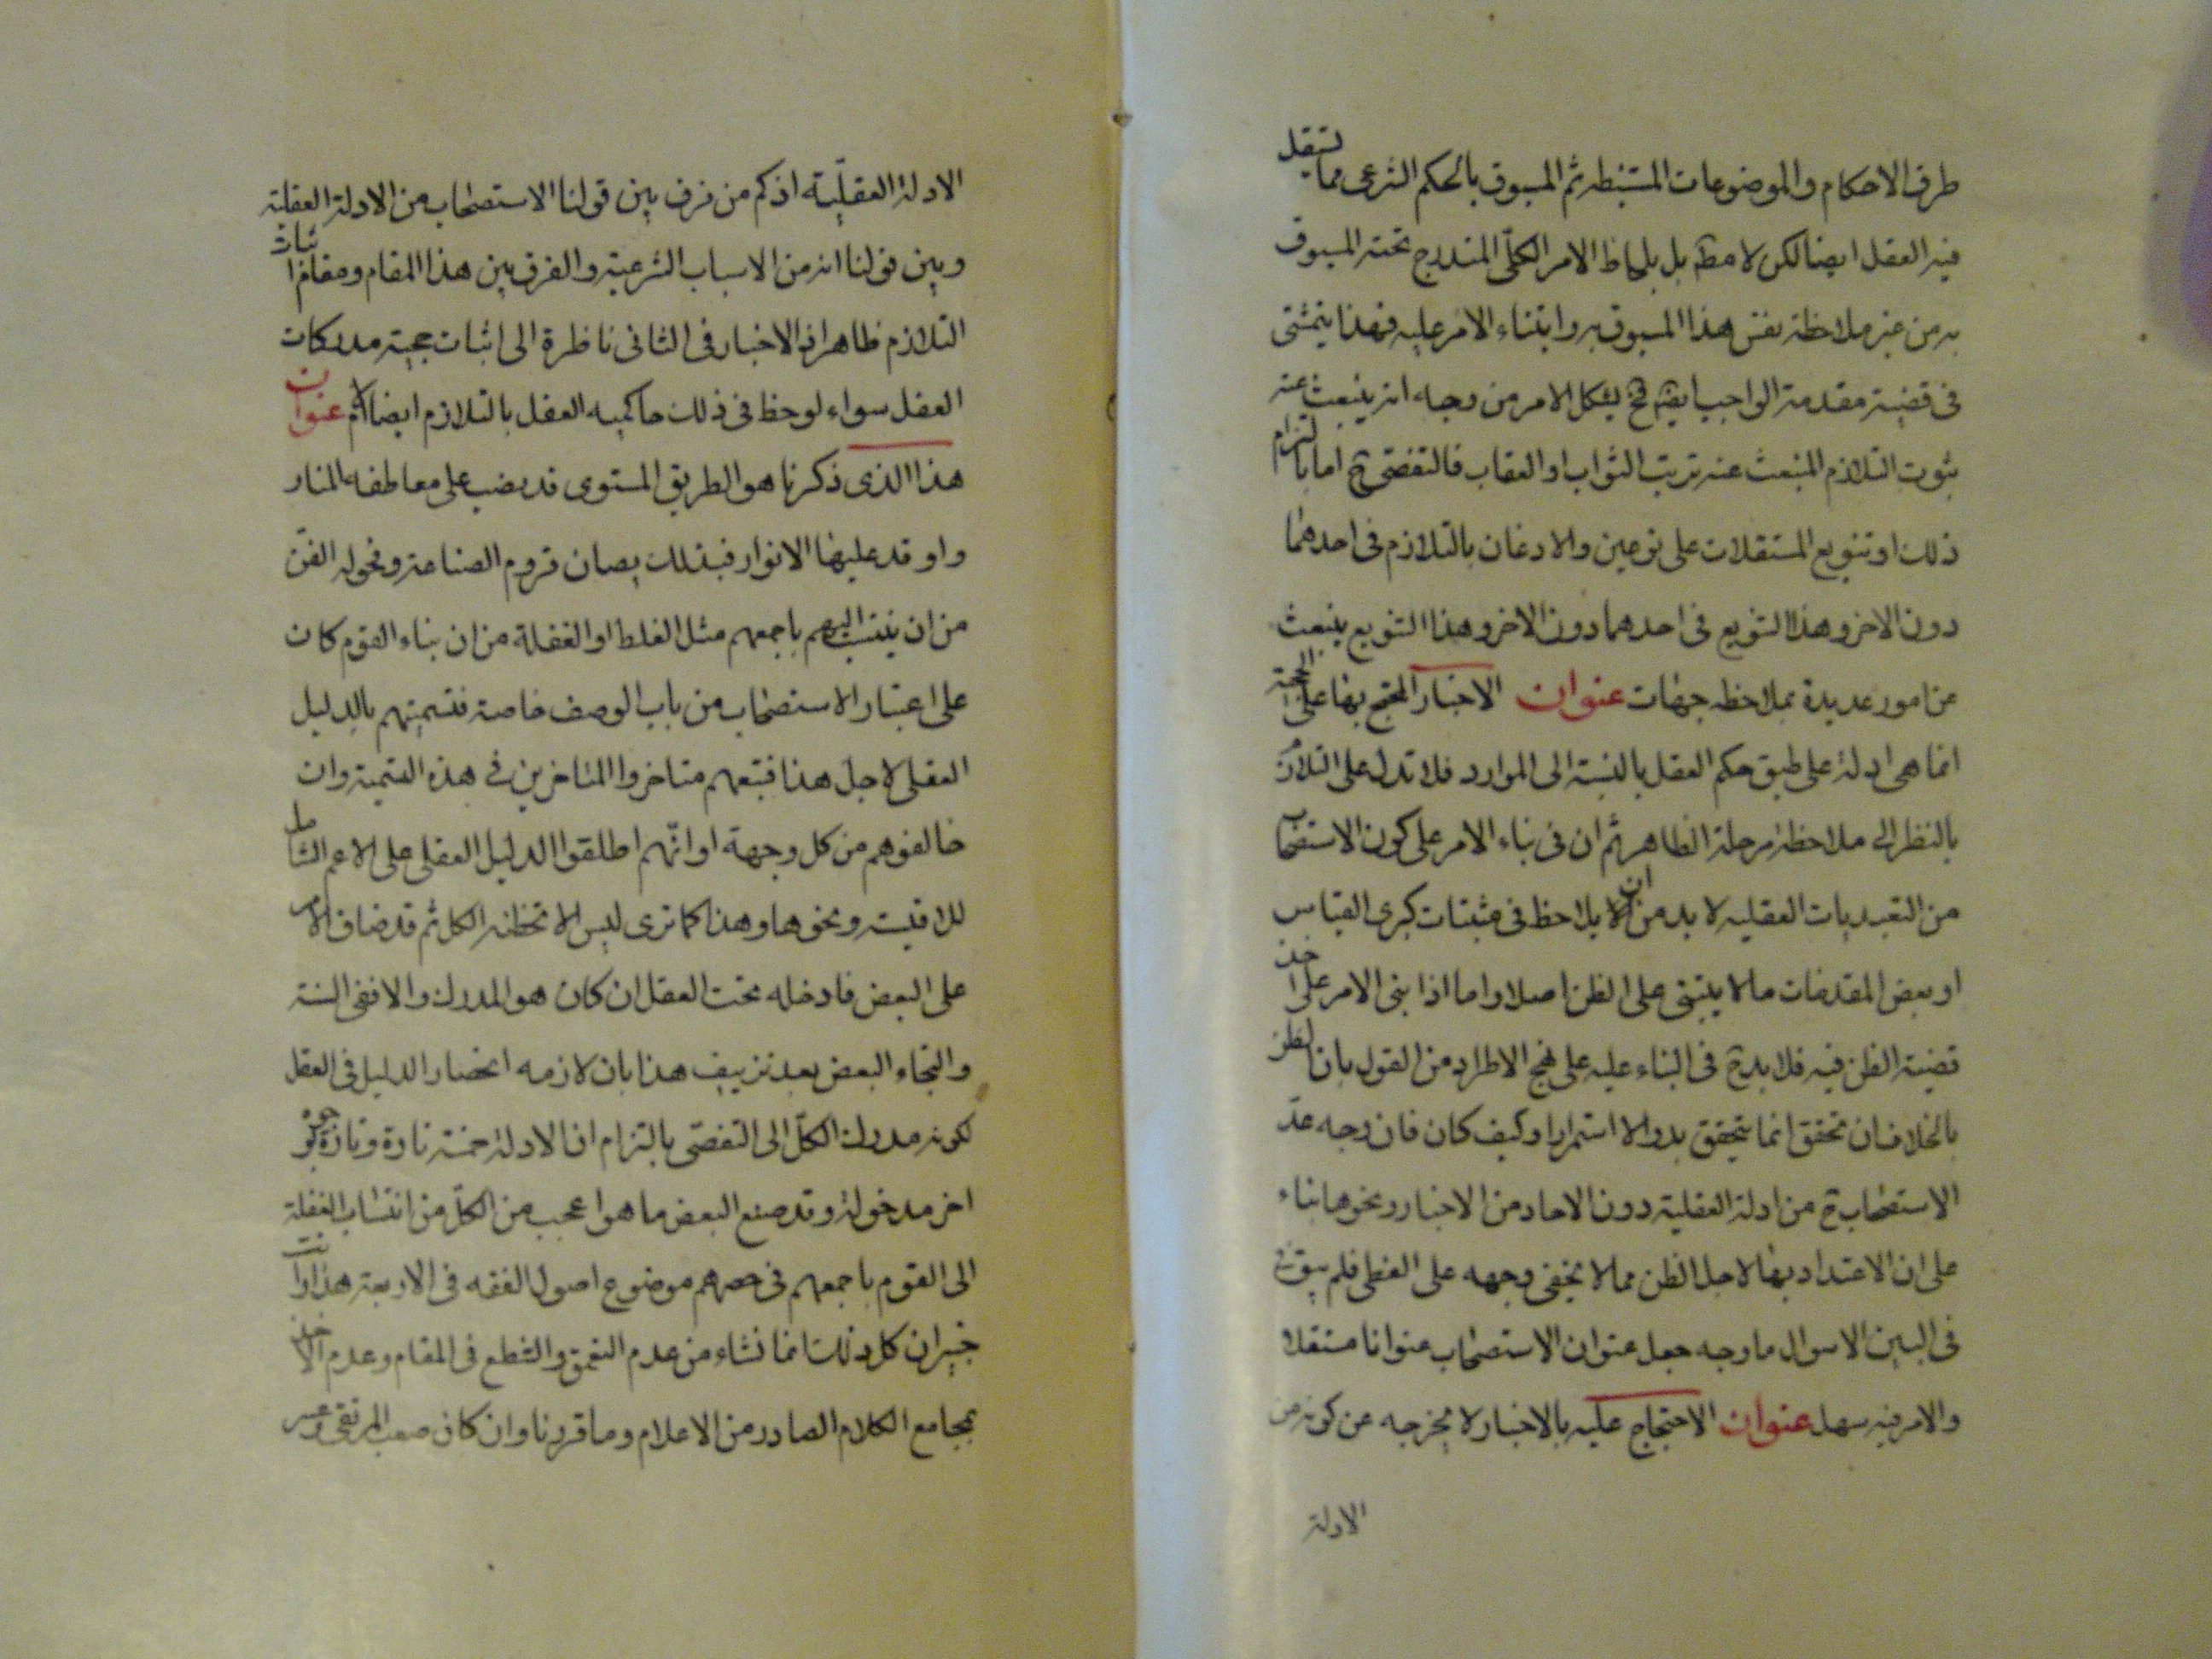 طرف الاحكام والموضوعات المستنبطه ثم المسبوق بالحكم الشرعى مما يستقل
فيه العقل ايضا لكن لا مطّ بل بلحاظ الامر الكلّى المندرج تحته المسبوق
به من غير ملاحظة نفس هذا المسبوق به وابتناء الامر عليه فهذا يتمشى
فى قضية مقدمة الواجب ايضا فح يشكل الامر من وجهه انه ينبعث عنه
ثبوت التلازم المنبعث عنه ترتب الثواب او العقاب فالتفصّى ح اما بالتزام
ذلك او تنويع المستقلات على نوعين والاذعان بالتلازم فى احدهما
دون الاخر وهذا التنويع فى احدهما دون الاخر وهذا التنويع ينبعث
عن امور عديدة بملاحظه جهات عنوان الاخبار المحتج بها على الحجية
انما هى ادلة على طبق حكم العقل بالنسبة الى الموارد فلا تدل على التلازم
بالنظر الى ملاحظة مرحلة الظاهر ثم ان فى بناء الامر على كون الاستصحاب
من التعبديات العقليه لا بد من ان لا يلاحظ فى مثبتات كبرى القياس
او بعض المقدمات ما لا يبتنى على الظن اصلا واما اذا بنى الامر على اخذ
قضية الظن فيه فلا بد ح فى البناء عليه على نهج الاطراد من القول بان الظن
بالخلاف ان تحقق انما يتحقق بدوا لا استمرارا وكيف كان فان وجه عدّ
الاستصحاب ح من ادلة العقلية دون الاحاد من الاخبار ونحوها بناء
على ان الاعتداد بها لاجل الظن مما لا يخفى وجهه على الفطن فلم يبق ح
فى البين الا سوال ما وجه جعل عنوان الاستصحاب عنوانا مستقلا
والامر فيه سهل عنوان الاحتجاج عليه بالاخبار لا يخرجه عن كونه من
الادلة
الادلة العقليّة اذ كم من فرق بين قولنا الاستصحاب من الادلة العقلية
وبين قولنا انه من الاسباب الشرعية والفرق بين هذا المقام ومقام اثبات
التلازم ظاهر اذ الاخبار فى الثانى ناظرة الى اثبات حجية مدركات
العقل سواء لوحظ فى ذلك حاكمية العقل بالتلازم ايضا ام لا عنوان
هذا الذى ذكرنا هو الطريق المستوى قد نصب على معاطفه المنار
واوقد عليها الانوار فبذلك يصان قروم الصناعة وفحولة الفنّ
من ان ينسب اليهم باجمعهم مثل الغلط او الغفلة من ان بناء القوم كان
على اعتبار الاستصحاب من باب الوصف خاصة فتسميتهم بالدليل
العقلى لاجل هذا فتبعهم متاخروا المتاخرين فى هذه التسمية وان
خالفوهم من كل وجهة او انّهم اطلقوا الدليل العقلى على الاعم الشامل
للاقيسة ونحوها وهذا كما ترى ليس الا تخطئة الكل ثم قد ضاق الامر
على البعض فادخله تحت العقل ان كان هو المدرك والا ففى السنة
والتجاء البعض بعد تزييف هذا بان لازمه انحصار الدليل فى العقل
لكونه مدرك الكلّ الى التفصّى بالتزام ان الادلة خمسة تارة وتارة بوجوه
اخر مدخولة وقد صنع البعض ما هو اعجب من الكلّ من انتساب الغفلة
الى القوم باجمعهم فى حصرهم موضوع اصول الفقه فى الاربعة هذا وانت
خبير ان كل ذلك انما نشاء من عدم التعمق والتضلع فى المقام وعدم الاخذ
بمجامع الكلام الصادر من الاعلام وما قررنا وان كان صعب المرتقى وعسر